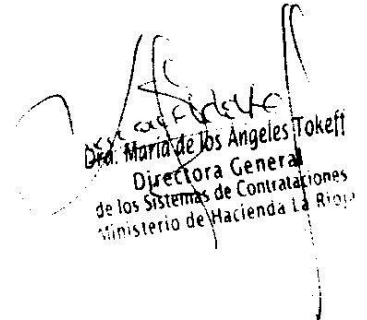 Dra. María de los Angeles Tokeft
Directora General
de los Sistemas de Contrataciones
Ministerio de Hacienda La Rioja